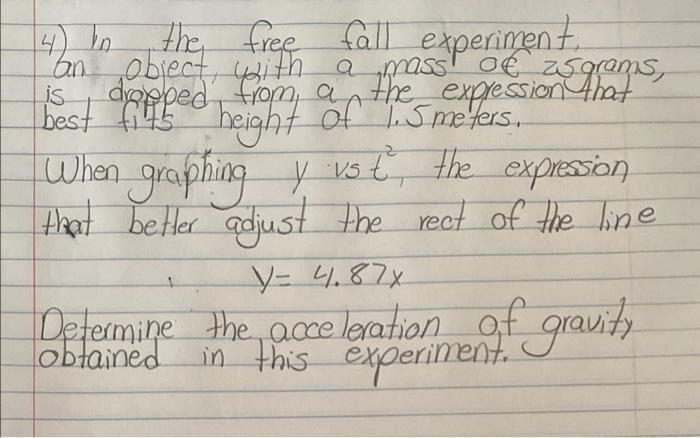 4) In the free fall experiment,
an object, with a mass of 25grams,
is dropped from a the expression that
best fits height of 1.5meters.
When graphing y vs t², the expression
that better adjust the rect of the line
y= 4.87x
Determine the acceleration of gravity
obtained in this experiment.